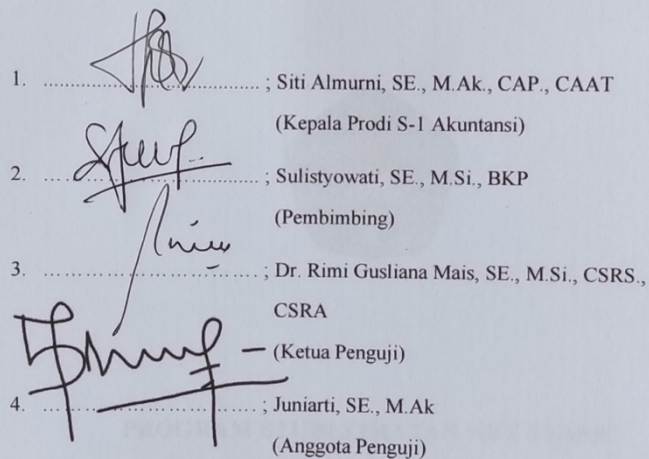 1. .......................................... ; Siti Almurni, SE., M.Ak., CAP., CAAT
(Kepala Prodi S-1 Akuntansi)
2. .......................................... ; Sulistyowati, SE., M.Si., BKP
(Pembimbing)
3. .......................................... ; Dr. Rimi Gusliana Mais, SE., M.Si., CSRS.,
CSRA
(Ketua Penguji)
4. .......................................... ; Juniarti, SE., M.Ak
(Anggota Penguji)